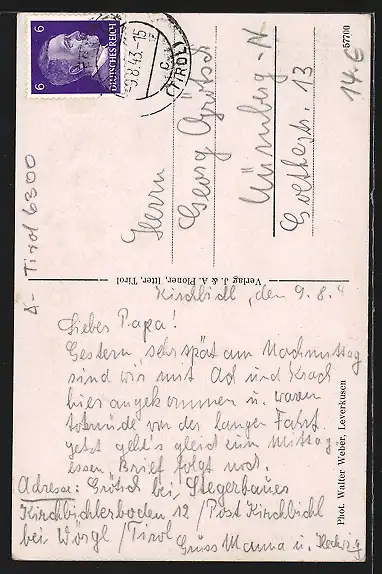 6
6
DEUTSCHES REICH
8.43.-15
C
(TIROL)
14.-€
57700
A- Tirol 6300
Herrn
Georg Grötsch
Nürnberg-N
Goethestr. 13
Verlag J. & A. Ploner, Itter, Tirol
Kirchbichl, den 9.8.4
Lieber Papa!
Gestern sehr spät am Nachmittag
sind wir mit Ach und Krach
hier angekommen u. waren
todmüde von der langen Fahrt.
Jetzt geht's gleich zum Mittag
essen. Brief folgt noch.
Adresse: Grötsch bei Stegerbauer
Kirchbichlerboden 12 / Post Kirchbichl
bei Wörgl / Tirol
Gruss Mamma u.
Phot. Walter Weber, Leverkusen